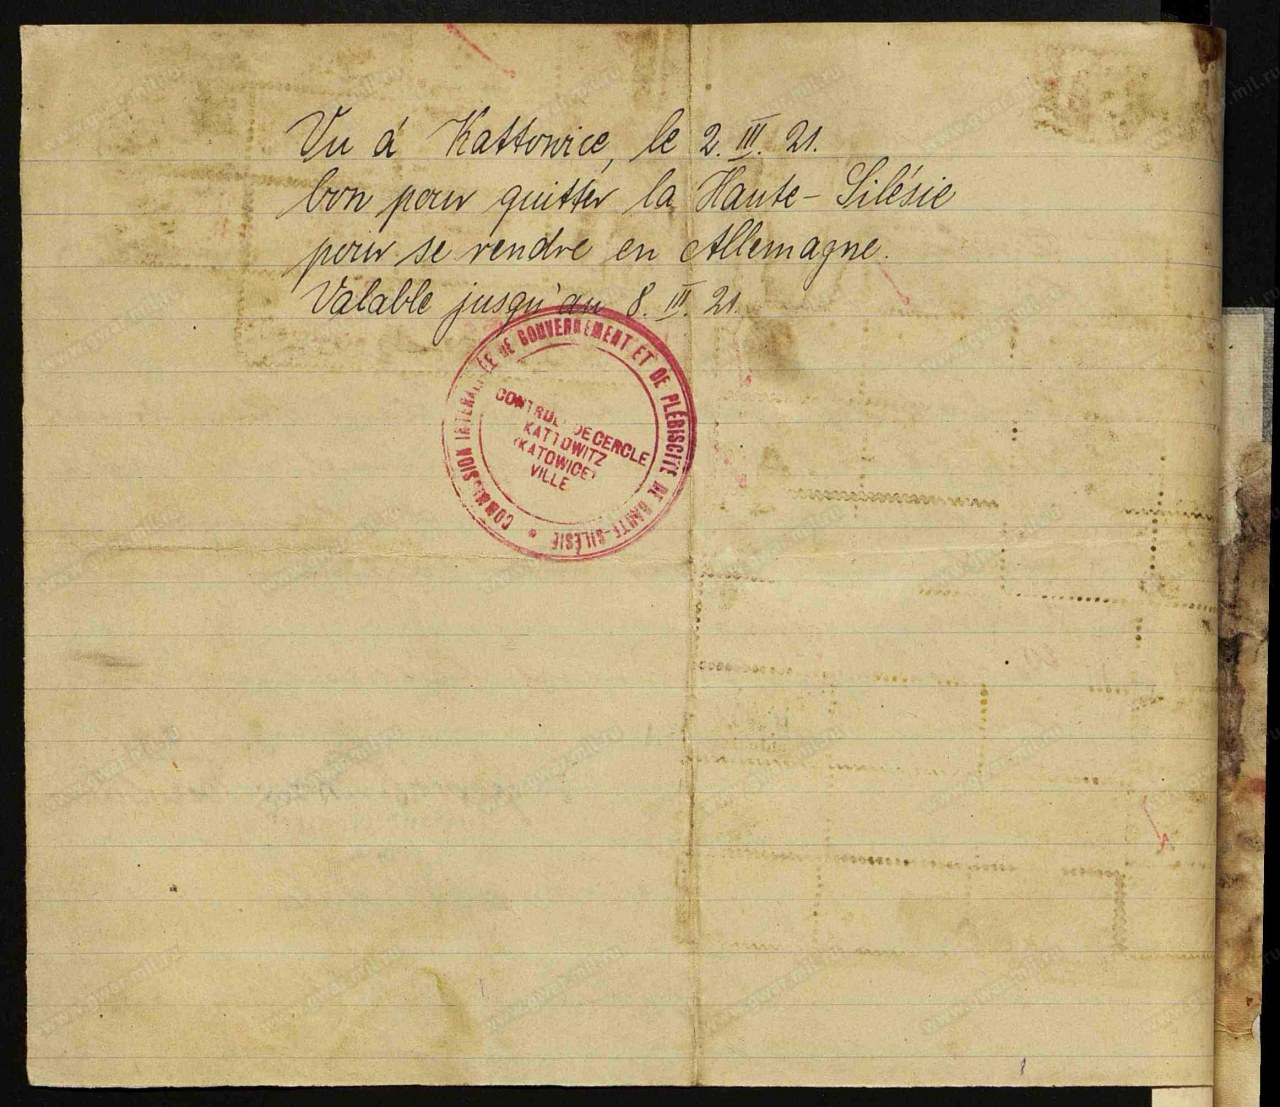 Vu à Kattowice, le 2. III. 21.
bon pour quitter la Haute-Silésie
pour se rendre en Allemagne.
Valable jusqu'au 8. III. 21.
COMMISSION INTERALLIÉE DE GOUVERNEMENT ET DE PLÉBISCITE DE HAUTE-SILÉSIE *
CONTROLE DE CERCLE
KATTOWITZ
(KATOWICE)
VILLE
www.gwar.mil.ru